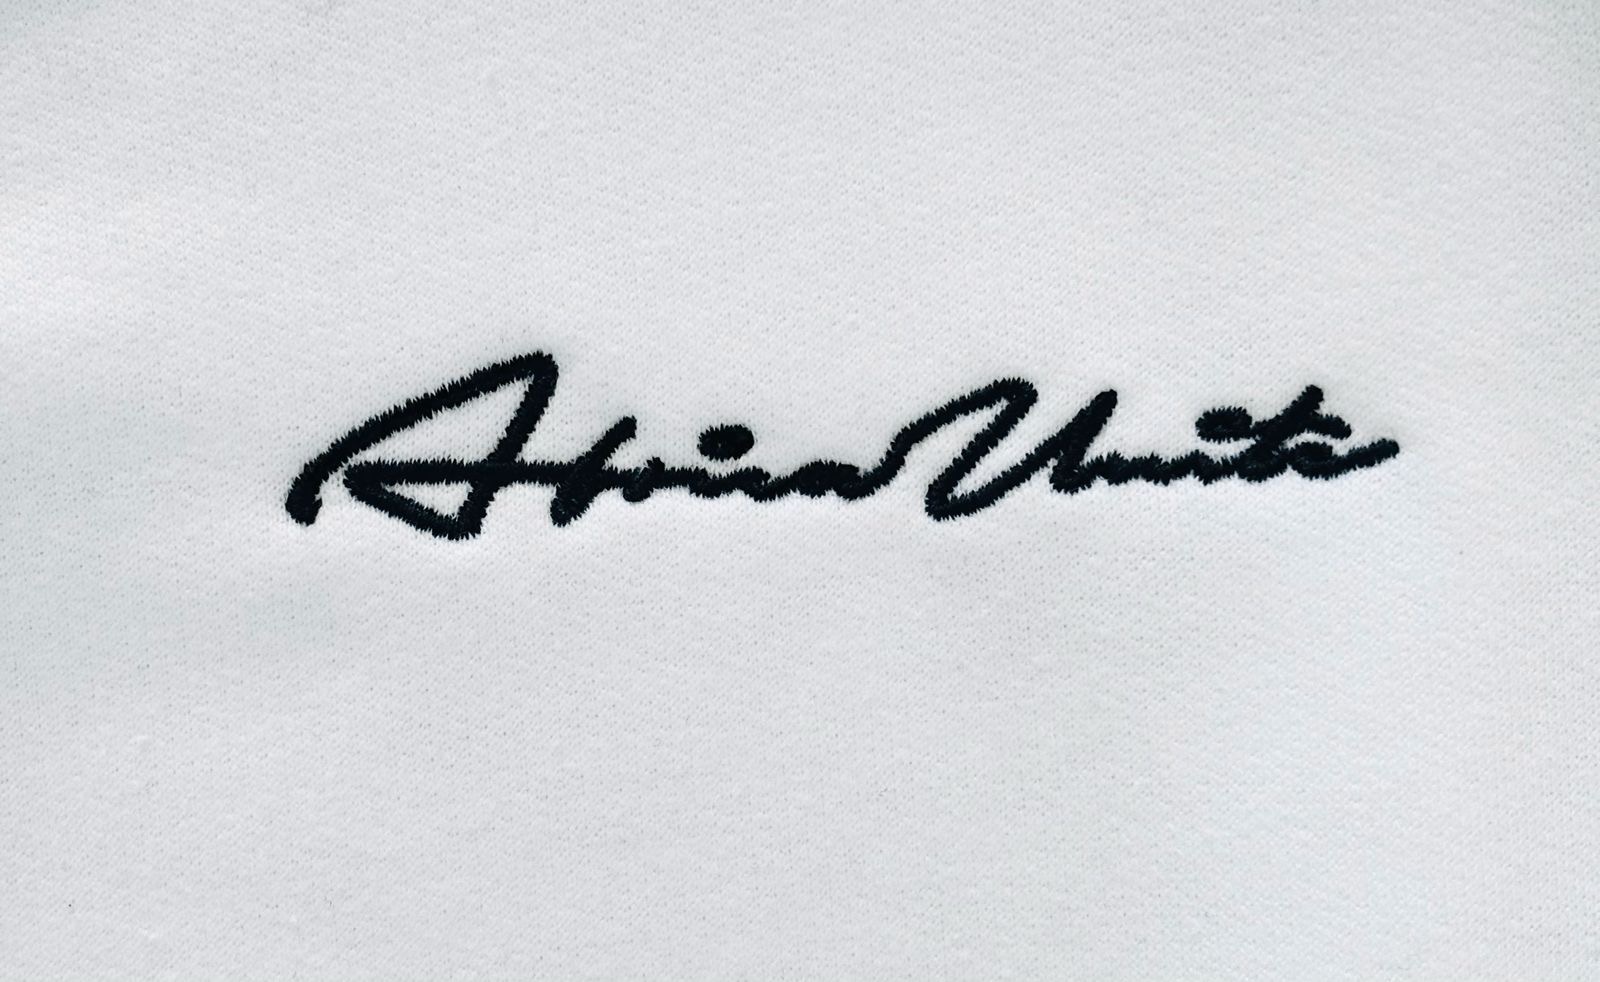 Africa Unite